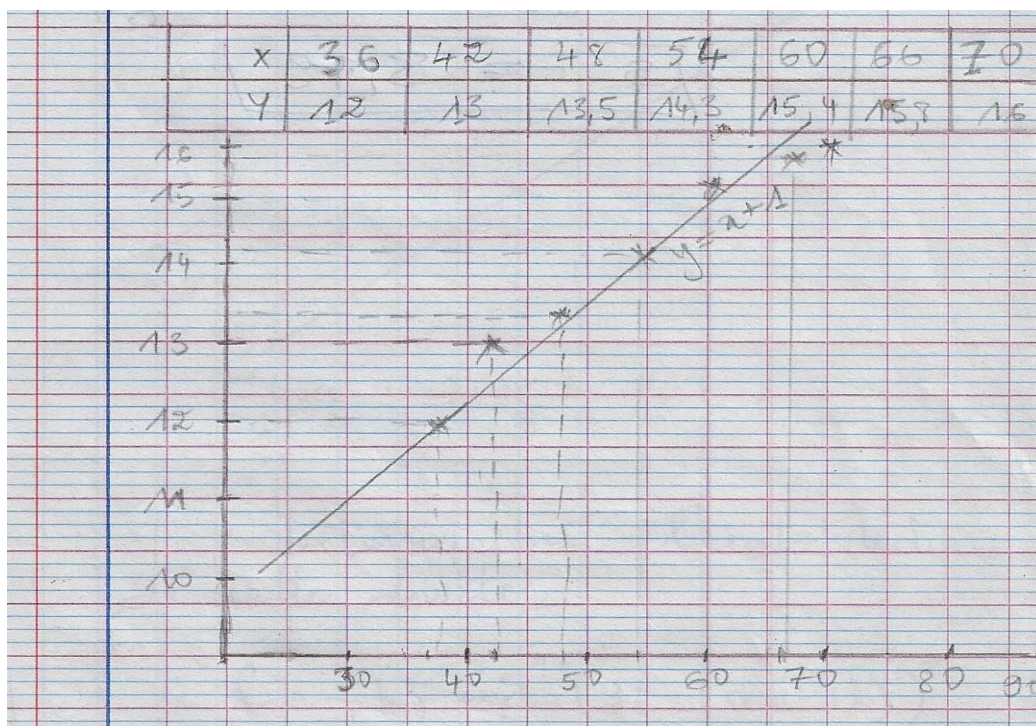 X 36 42 48 54 60 66 70
Y 12 13 13,5 14,3 15,4 15,8 16
16
15
14
13
12
11
10
y = x + 1
30 40 50 60 70 80